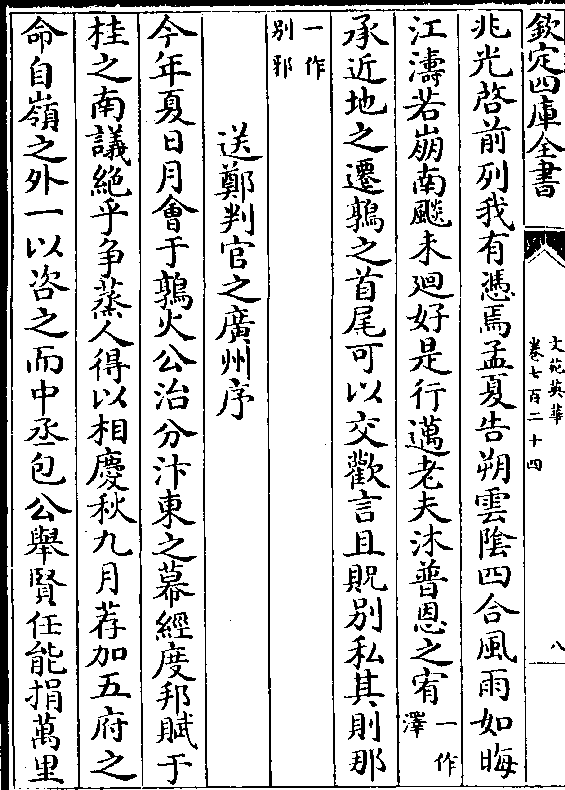 欽定四庫全書
文苑英華
卷七百二十四
八
兆光啓前列我有憑焉孟夏告朔雲陰四合風雨如晦
江濤若崩南颷未廻好是行邁老夫沐普恩之宥一作澤
承近地之遷鶉之首尾可以交歡言且貺别私其則那
一作别邪
送鄭判官之廣州序
今年夏日月會于鶉火公治分汴東之幕經度邦賦于
桂之南議絶乎争蒸人得以相慶秋九月荐加五府之
命自嶺之外一以咨之而中丞包公舉賢任能捐萬里